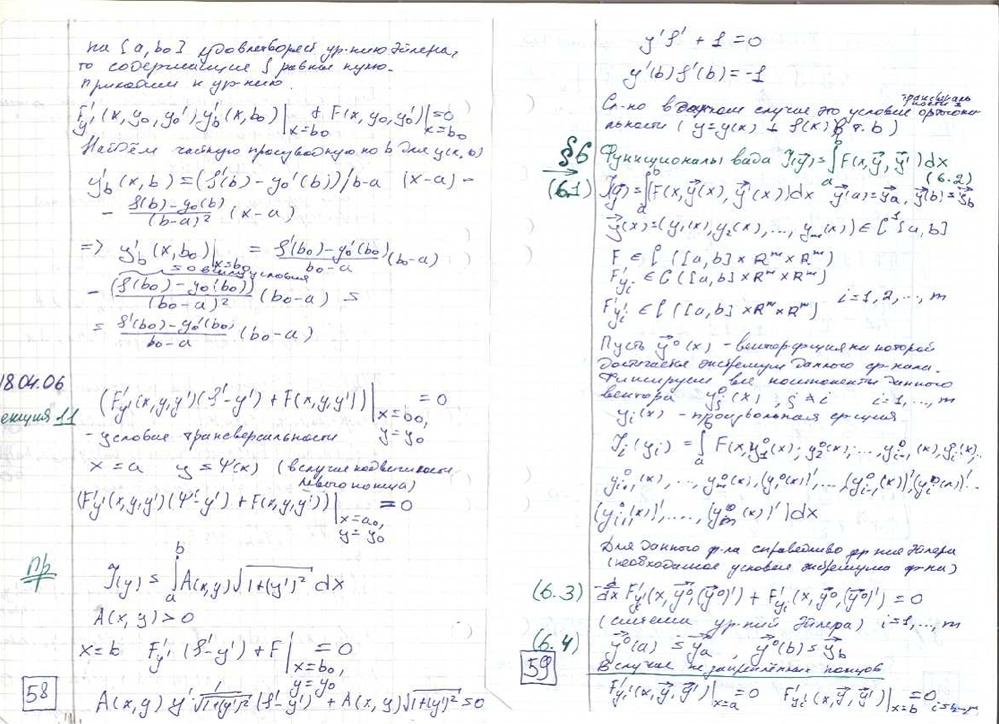 на [a, b₀] удовлетворяет ур-нию Эйлера,
то содержащие ∫ равны нулю.
Приходим к ур-нию
F'y'(x, y₀, y₀') y'b(x, b₀)|x=b₀ + F(x, y₀, y₀')|x=b₀ = 0
Найдём частную производную по b для y(x, b)
y'b(x, b) = (φ'(b) - y₀'(b))/b-a (x-a) -
- φ(b) - y₀(b)/(b-a)² (x-a)
=> y'b(x, b₀)|x=b₀ = φ'(b₀) - y₀'(b₀)/b₀-a (b₀-a)
= 0 ввиду условия
- (φ(b₀) - y₀(b₀))/(b₀-a)² (b₀-a) =
= φ'(b₀) - y₀'(b₀)/b₀-a (b₀-a)
18.04.06
лекция 11
(F'y'(x, y, y')(φ'-y') + F(x, y, y'))|x=b₀, y=y₀ = 0
- условие трансверсальности
x = a y = ψ(x) (в случае подвижности
левого конца)
(F'y'(x, y, y')(ψ'-y') + F(x, y, y'))|x=a₀, y=y₀ = 0
Пр
J(y) = ∫ₐᵇ A(x, y)√1+(y')² dx
A(x, y) > 0
x = b F'y'(φ'-y') + F|x=b₀, y=y₀ = 0
A(x, y) y' 1/√1+(y')² (φ'-y') + A(x, y)√1+(y')² = 0
58
y'φ' + 1 = 0
y'(b)φ'(b) = -1
Сл-но в данном случае это условие трансверсальности = ортогона-
льности (y = y(x) ⊥ φ(x) в т. b)
§6 Функционалы вида J(y⃗) = ∫ₐᵇ F(x, y⃗, y⃗') dx
(6.1) J(y⃗) = ∫ₐᵇ F(x, y⃗(x), y⃗'(x)) dx y⃗(a) = y⃗a, y⃗(b) = y⃗b (6.2)
y⃗(x) = (y₁(x), y₂(x), ..., yₘ(x)) ∈ C¹[a, b]
F ∈ C([a, b] × Rᵐ × Rᵐ)
F'yᵢ ∈ C([a, b] × Rᵐ × Rᵐ)
F'yᵢ' ∈ C([a, b] × Rᵐ × Rᵐ) i = 1, 2, ..., m
Пусть y⃗⁰(x) - вектор-функция на которой
достигается экстремум данного ф-нала.
Фиксируем все компоненты данного
вектора yⱼ⁰(x), j ≠ i i = 1, ..., m
yᵢ(x) - произвольная функция
Jᵢ(yᵢ) = ∫ₐᵇ F(x, y₁⁰(x), y₂⁰(x), ..., yᵢ₋₁⁰(x), yᵢ(x),
yᵢ₊₁⁰(x), ..., yₘ⁰(x), (y₁⁰(x))', ..., (yᵢ₋₁⁰(x))', (yᵢ⁰(x))', ...
(yᵢ₊₁⁰(x))', ..., (yₘ⁰(x))') dx
Для данного ф-ла справедливо ур-ние Эйлера
(необходимое условие экстремума ф-ла)
(6.3) -d/dx F'yᵢ'(x, y⃗⁰, (y⃗⁰)') + F'yᵢ(x, y⃗⁰, (y⃗⁰)') = 0
(система ур-ний Эйлера) i = 1, ..., m
(6.4) y⃗⁰(a) = y⃗a, y⃗⁰(b) = y⃗b
В случае не закреплённых концов
F'yᵢ'(x, y⃗, y⃗')|x=a = 0 F'yᵢ'(x, y⃗, y⃗')|x=b = 0
59